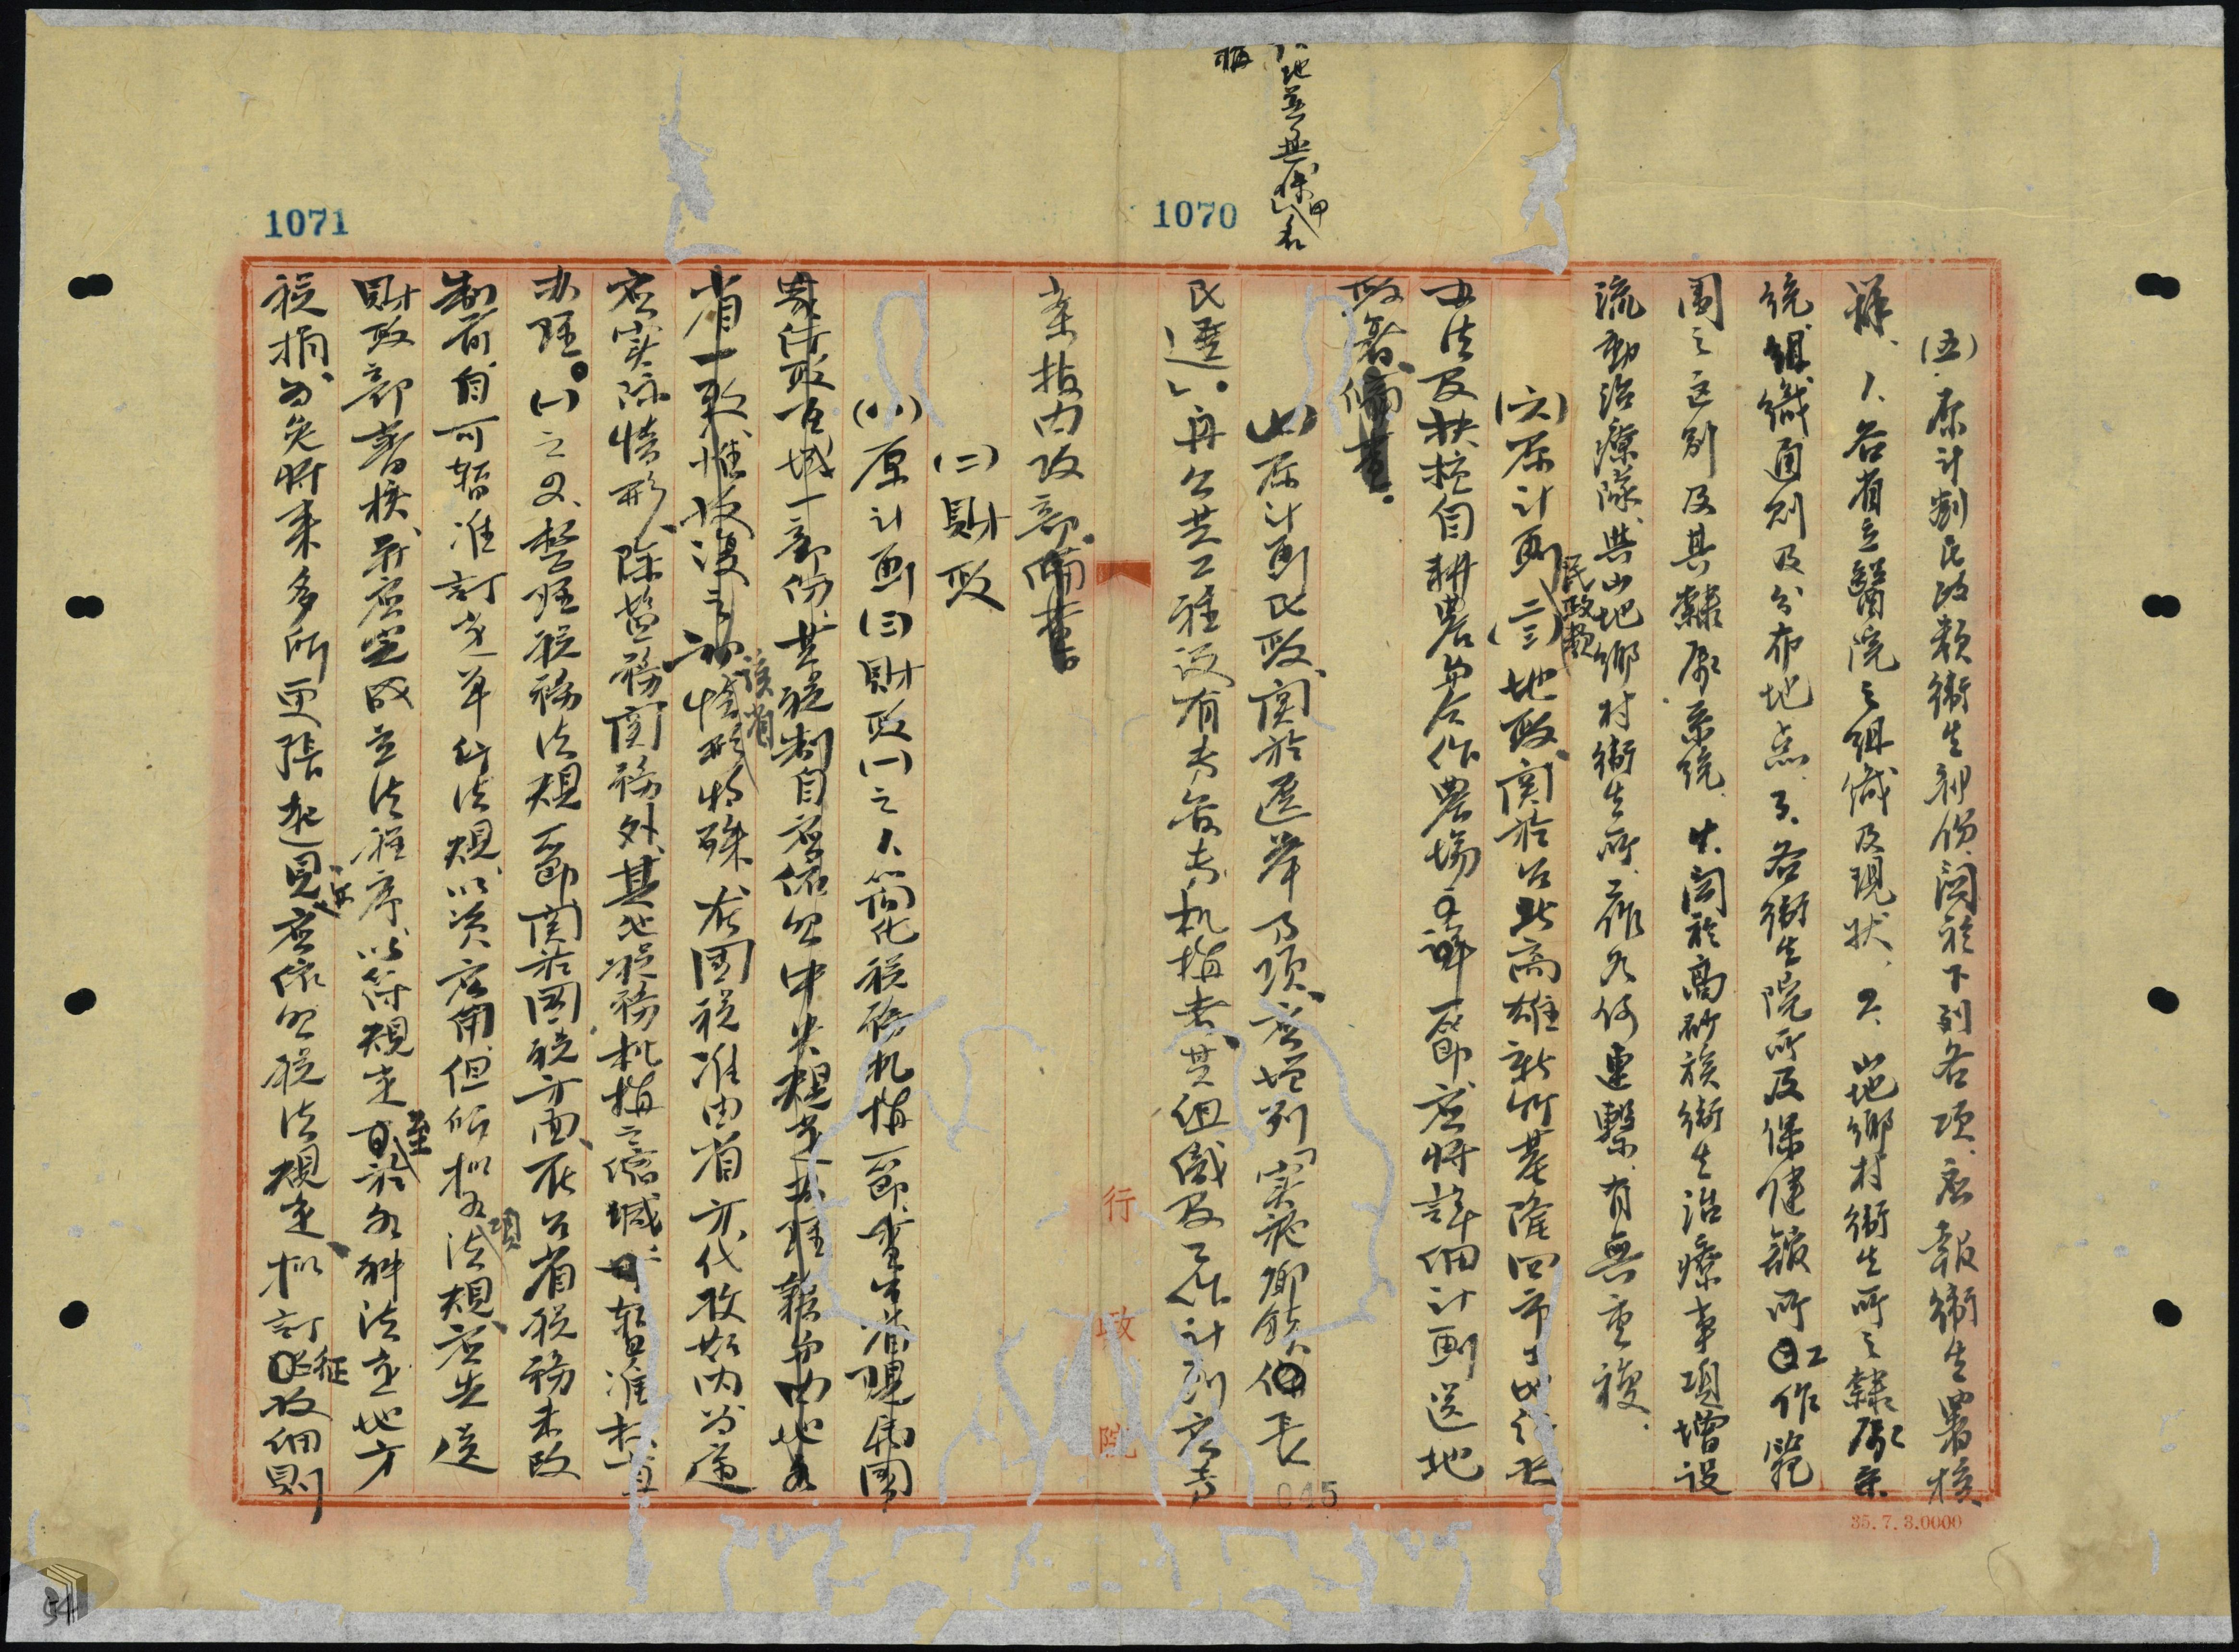 (五)原計劃民政類衛生部份關於下列各項應報衛生署核
辦、1、各省立醫院之組織及現狀、2、山地鄉村衛生所之隸屬系
統組織通則及分布地点、3、各衛生院所及保健館所工作範
圍之區別及其隸屬系統、4、關於高砂族衛生治療事項增設
流動治療隊與山地鄉村衛生所工作如何連繫有無重複、
(六)原計劃民政類(三)地政、關於台北高雄新竹基隆四市
辦法及扶植自耕農與合作農場各節應將詳細計劃送地
政署、備查。
原計劃民政、關於選舉乃項、應增列「實施鄉鎮長
民選」。再公共工程設有專管機構者、其組織及工作計劃應專
案報內政部、備查。
地並無保甲
(二)財政
(八)原計劃(三)財政(一)之1、簡化稅務机構一節、查台省現為國
家行政區域一部份、其稅制自應依照中央規定辦理
省一致、惟該省情形特殊、在國稅准由省方代收期內、為適
應實際情形、除鹽務關務外、其他稅務机構之縮減、可暫准
办理。(一)之2、整理稅務法規一節、關於國稅方面、在台省稅務未改
制前、自可暫准訂定單行法規、以資應用、但所擬各項法規、應先送
財政部審核、並應完成立法程序、以符規定、至於各種法定地方
稅捐、為免將來多所更張起見、應依照稅法規定、擬訂征收細則
行政院
1070
1071
045
35.7.3.0000